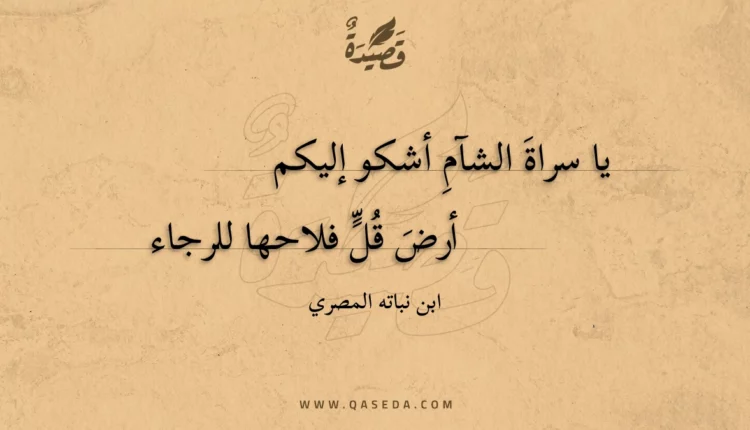 قَصِيْدَةٌ
يا سراةَ الشآمِ أشكو إليكم
أرضَ قُلٍّ فلاحها للرجاء
ابن نباته المصري
WWW.QASEDA.COM